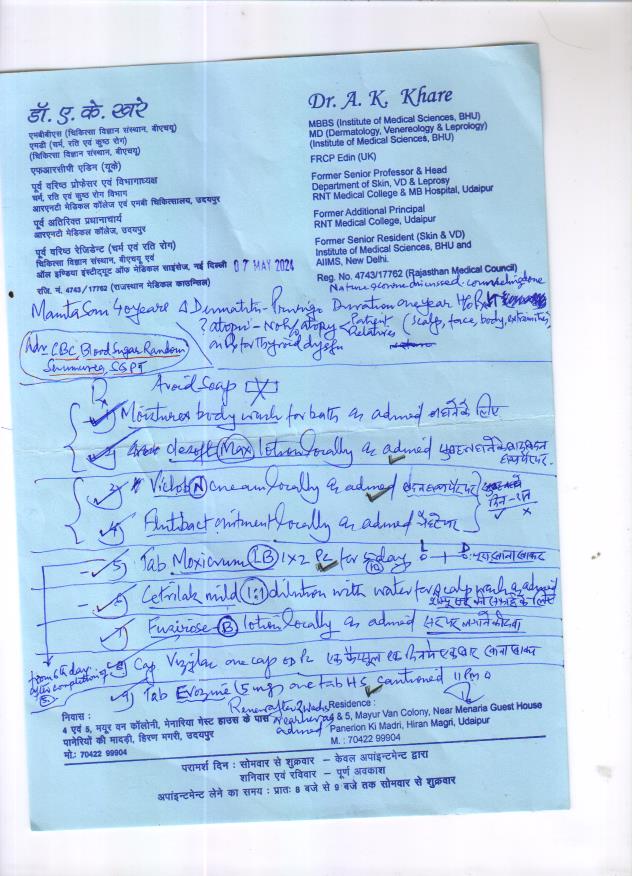 डॉ. ए. के. खरे
एमबीबीएस (चिकित्सा विज्ञान संस्थान, बीएचयू)
एमडी (चर्म, रति एवं कुष्ठ रोग)
(चिकित्सा विज्ञान संस्थान, बीएचयू)
एफआरसीपी एडिन (यूके)
पूर्व वरिष्ठ प्रोफेसर एवं विभागाध्यक्ष
चर्म, रति एवं कुष्ठ रोग विभाग
आरएनटी मेडिकल कॉलेज एवं एमबी चिकित्सालय, उदयपुर
पूर्व अतिरिक्त प्रधानाचार्य
आरएनटी मेडिकल कॉलेज, उदयपुर
पूर्व वरिष्ठ रेजिडेन्ट (चर्म एवं रति रोग)
चिकित्सा विज्ञान संस्थान, बीएचयू एवं
ऑल इण्डिया इंस्टीट्यूट ऑफ मेडिकल साइंसेज, नई दिल्ली
रजि. नं. 4743 / 17762 (राजस्थान मेडिकल काउन्सिल)
07 MAY 2024
Dr. A. K. Khare
MBBS (Institute of Medical Sciences, BHU)
MD (Dermatology, Venereology & Leprology)
(Institute of Medical Sciences, BHU)
FRCP Edin (UK)
Former Senior Professor & Head
Department of Skin, VD & Leprosy
RNT Medical College & MB Hospital, Udaipur
Former Additional Principal
RNT Medical College, Udaipur
Former Senior Resident (Skin & VD)
Institute of Medical Sciences, BHU and
AIIMS, New Delhi.
Reg. No. 4743/17762 (Rajasthan Medical Council)
Nature course discussed. counselling done
Mamta Soni 40 years Δ Dermatitis Prurigo Duration one year
? atopic - No H/o atopy < Patient Relatives (scalp, face, body, extremities)
on Rx for thyroid dysfn
Adv CBC, Blood Sugar Random
Serum urea, SGPT
Rx Avoid Soap
1) Moisturex body wash for bath as advised नहाने के लिए
2) desoft Max lotion locally as advised
3) cream locally as advised
4) Antibact ointment locally as advised
5) Tab Moxicrum LB 1x2 PC for 5 day
6) Cetrilak mild 1:1 dilution with water for scalp wash as advised
7) Fuzirose B lotion locally as advised
from 6th day after completion of 5
8) Cap one cap OD PC एक कैप्सूल एक दिन में एक बार खाना खाकर
9) Tab Evozine (5 mg) one tab HS cautioned 11 PM
Review after 2 weeks
निवास :
4 एवं 5, मयूर वन कॉलोनी, मेनारिया गेस्ट हाउस के पास
पानेरियों की मादड़ी, हिरण मगरी, उदयपुर
मो.: 70422 99904
Residence :
4 & 5, Mayur Van Colony, Near Menaria Guest House
Panerion Ki Madri, Hiran Magri, Udaipur
M. : 70422 99904
परामर्श दिन : सोमवार से शुक्रवार – केवल अपाइन्टमेन्ट द्वारा
शनिवार एवं रविवार – पूर्ण अवकाश
अपाइंन्टमेन्ट लेने का समय : प्रातः 8 बजे से 9 बजे तक सोमवार से शुक्रवार